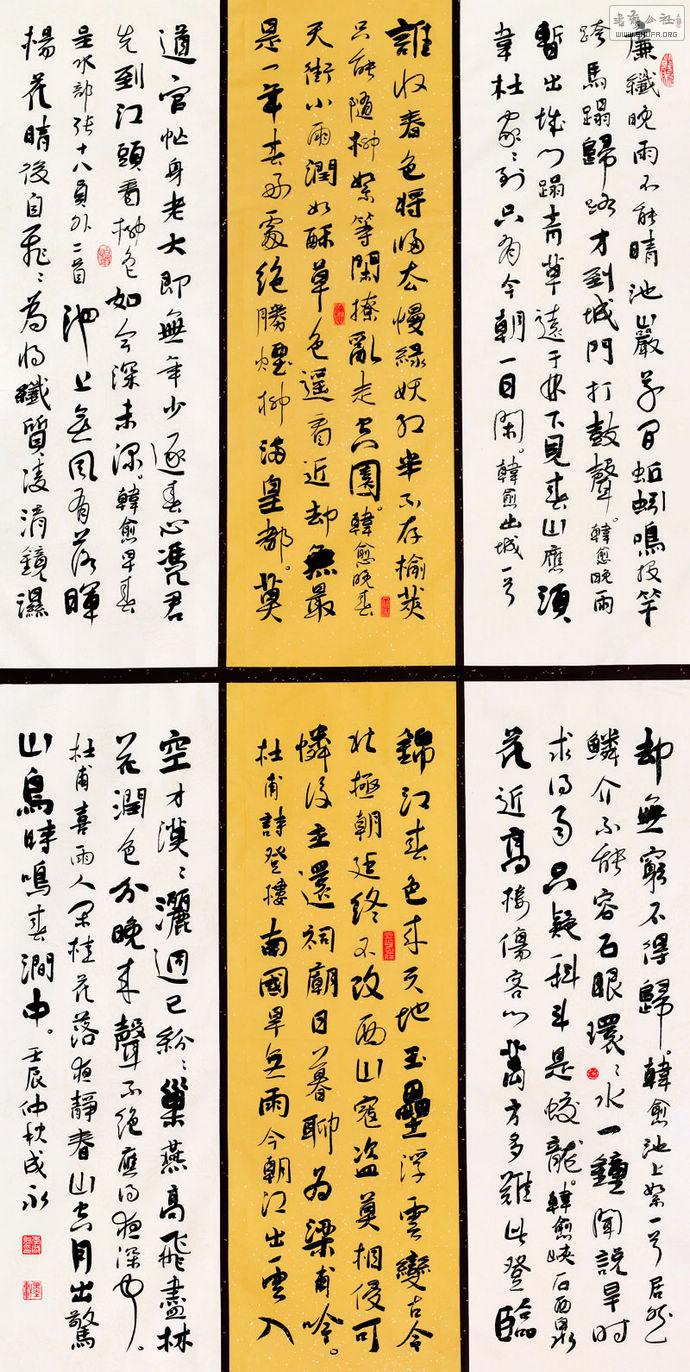 書法公社
WWW.SHUFA.ORG
廉纖晚雨不能晴池巖草間蚯蚓鳴投竿
跨馬蹋歸路才到城門打鼓聲。韓愈晚雨
暫出城門蹋青草遠于林下見春山應須
韋杜家〻到只有今朝一日閑。韓愈出城一首
誰收春色將歸去慢綠妖紅半不存榆莢
只能隨柳絮等閑撩亂走空園。韓愈晚春
天街小雨潤如酥草色遥看近却無最
是一年春好處絕勝煙柳滿皇都。莫
道官忙身老大即無年少逐春心憑君
先到江頭看柳色如今深未深。韓愈早春
呈水部張十八員外二首池上無風有落暉
楊花晴後自飛〻為將纖質凌清鏡濕
却無窮不得歸。韓愈池上絮一首居然
鱗介不能容石眼環〻水一鐘聞說旱時
求得雨只疑科斗是蛟龍。韓愈峽石西泉
花近高樓傷客心萬方多難此登臨
錦江春色來天地玉壘浮雲變古今
北極朝廷終不改西山寇盜莫相侵可
憐後主還祠廟日暮聊為梁甫吟。
杜甫詩登樓南國旱無雨今朝江出雲入
空才漠〻灑迥已紛〻巢燕高飛盡林
花潤色分晚來聲不絕應得夜深聞。
杜甫喜雨人閑桂花落夜靜春山空月出驚
山鳥時鳴春澗中。壬辰仲秋成永